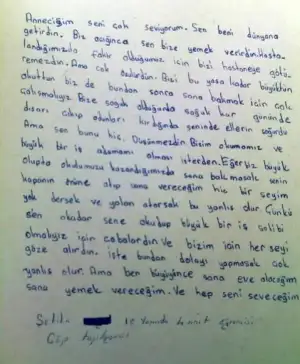 Anneciğim seni çok seviyorum. Sen beni dünyaya
getirdin. Biz acıkınca sen bize yemek verirdin. Hasta-
landığımızda fakir olduğumuz için bizi hastaneye götü-
remezdin. Ama çok üzülürdün. Bizi bu yaşa kadar büyüttün
okuttun biz de bundan sonra sana bakmak için çok
çalışmalıyız. Bize soğuk olduğunda soğuk kar gününde
dışarı çıkıp odunları kırdığında seninde ellerin soğurdu
Ama sen bunu hiç Düşünmezdin Bizim okumamız ve
büyük bir iş adamamı olması isterden. Eğer biz büyük
olupta okdumuzu kazandığımızda sana bakmasak senin
kapının önüne alıp sana vereceğim hiç bir şeyim
yok dersek ve yalan atarsak bu yanlış olur. Çünkü
sen okadar sene okudup büyük bir iş saibi
olmalıyız için çabalardın Ve bizim için her şeyi
göze alırdın. İşte bundan dolayı yapmasak çok
yanlış olur. Ama ben büyüyünce sana eve alacağım
sana yemek vereceğim. Ve hep seni seveceğim
12 Yaşında
Çöp topluyor